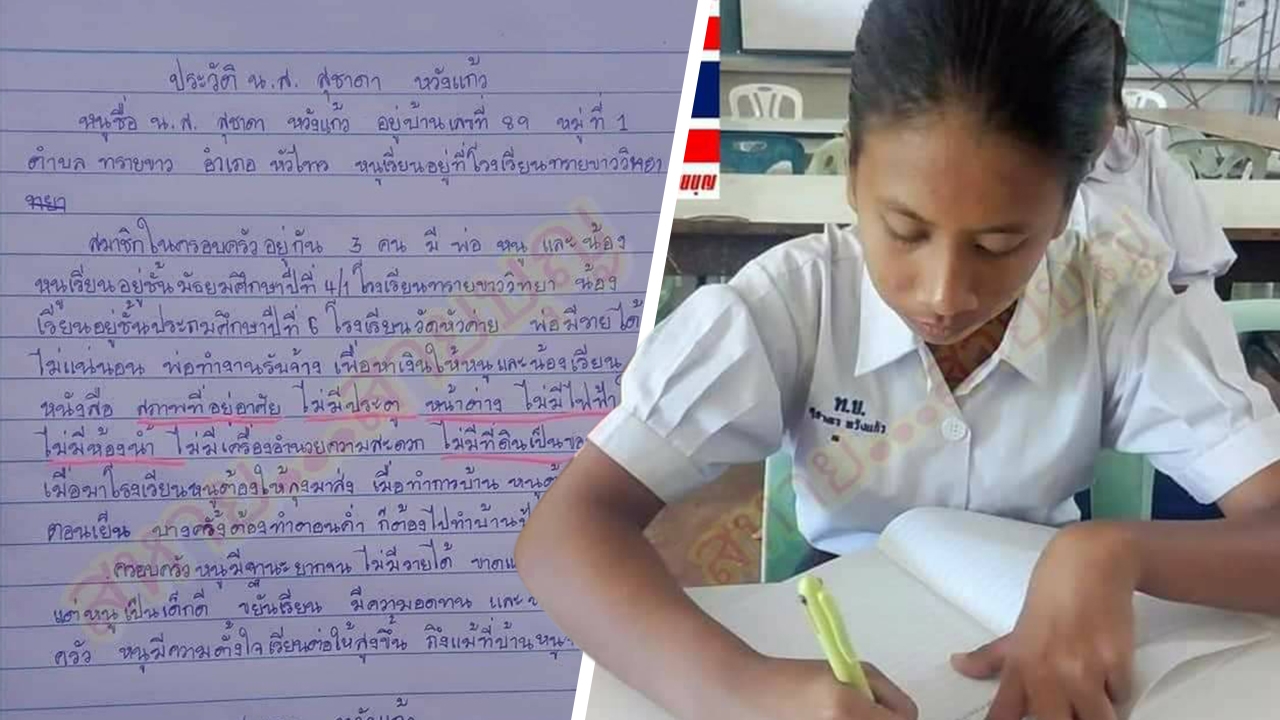 ประวัติ น.ส. สุชาดา หวังแก้ว
หนูชื่อ น.ส. สุชาดา หวังแก้ว อยู่บ้านเลขที่ 89 หมู่ที่ 1
ตำบล ทรายขาว อำเภอ หัวไทร หนูเรียนอยู่ที่โรงเรียนทรายขาววิทยา
ทยา
สมาชิกในครอบครัวอยู่กัน 3 คน มี พ่อ หนู และน้อง
หนูเรียนอยู่ชั้นมัธยมศึกษาปีที่ 4/1 โรงเรียนทรายขาววิทยา น้อง
เรียนอยู่ชั้นประถมศึกษาปีที่ 6 โรงเรียนวัดหัวค่าย พ่อมีรายได้
ไม่แน่นอน พ่อทำงานรับจ้าง เพื่อหาเงินให้หนูและน้องเรียน
หนังสือ สภาพที่อยู่อาศัย ไม่มีประตู หน้าต่าง ไม่มีไฟฟ้า
ไม่มีห้องน้ำ ไม่มีเครื่องอำนวยความสะดวก ไม่มีที่ดินเป็นของ
เมื่อมาโรงเรียนหนูต้องให้ลุงมาส่ง เมื่อทำการบ้าน หนูต้
ตอนเย็น บางครั้งต้องทำตอนค่ำ ก็ต้องไปทำบ้านป้
ครอบครัวหนูมีฐานะยากจน ไม่มีรายได้ ขาดแ
แต่หนูเป็นเด็กดี ขยันเรียน มีความอดทน และช
ครัว หนูมีความตั้งใจเรียนต่อให้สูงขึ้น ถึงแม้ที่บ้านหนู
หวังแก้ว
ยบุญ
ท.ข.
สุชาดา หวังแก้ว
สหาย...สายบุญ
สหาย...สายบุญ